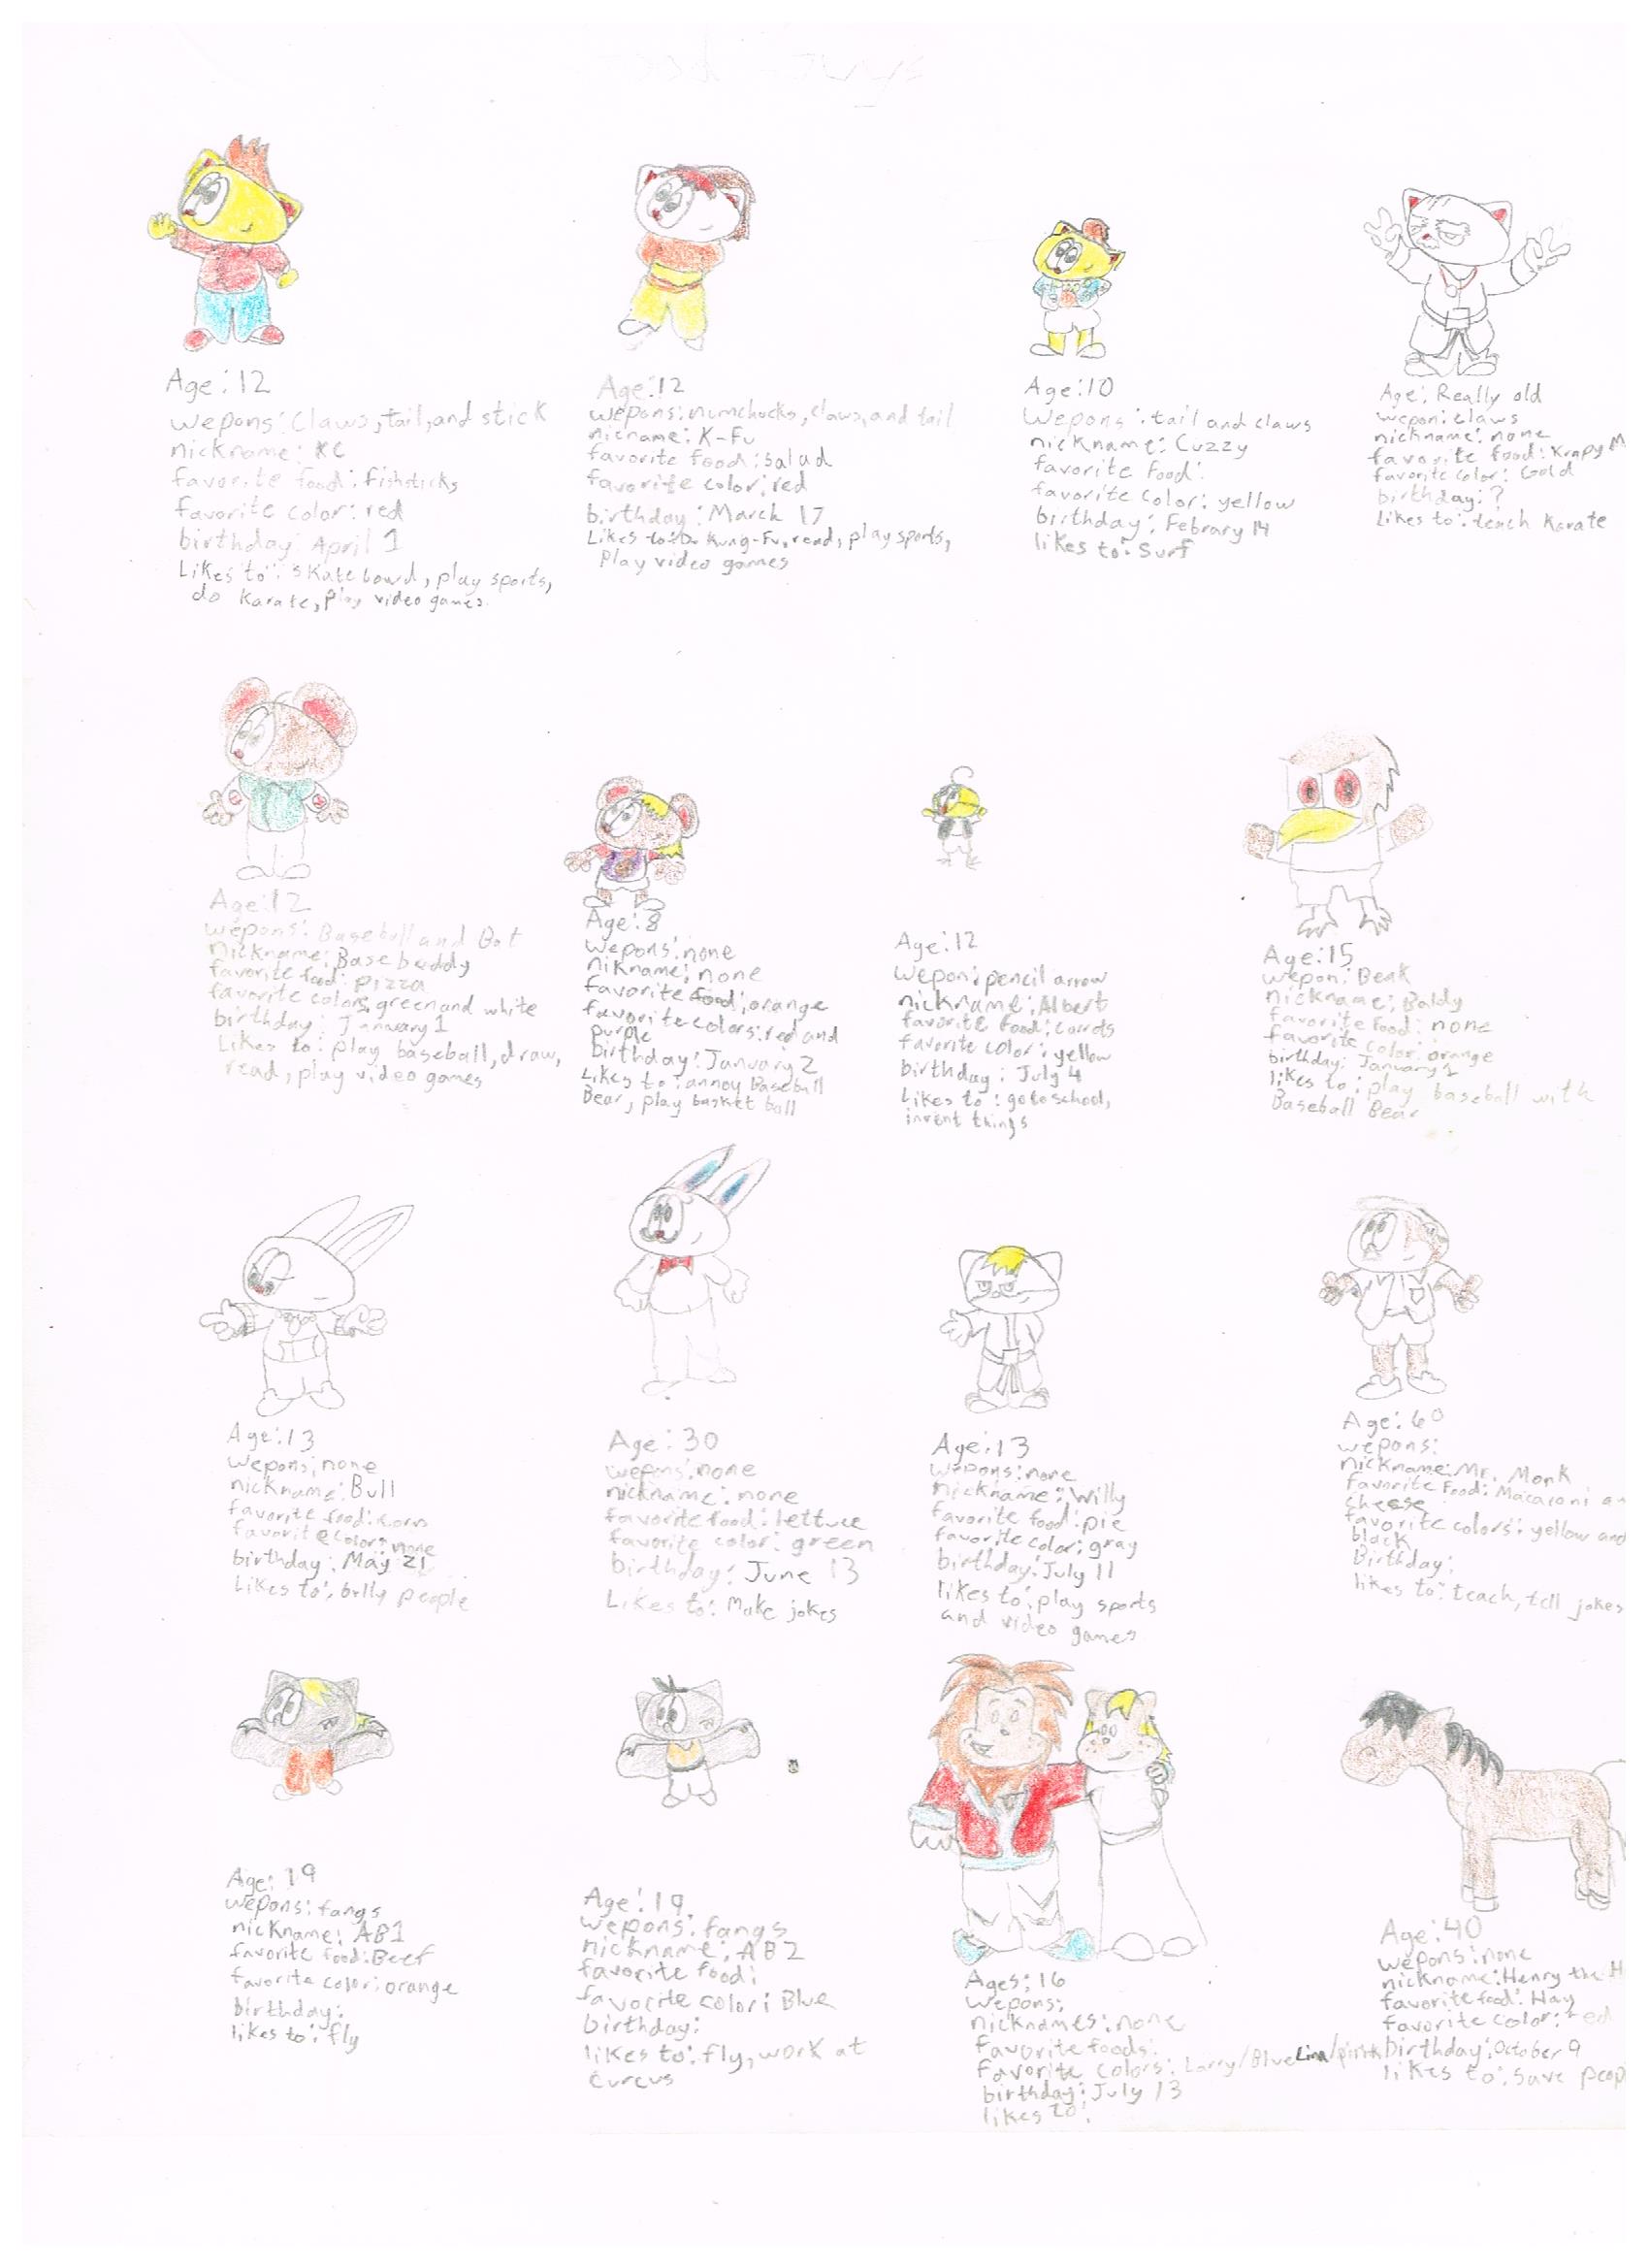 Age: 12
wepons: Claws, tail, and stick
nickname: KC
favorite food: fishsticks
favorite color: red
birthday: April 1
Likes to: skate bowd, play sports,
do karate, play video games
Age: 12
wepons: numchocks, claws, and tail
nicname: K-Fu
favorite food: salad
favorite color: red
birthday: March 17
Likes to: Do Kung-Fu, read, play sports,
Play video games
Age: 10
Wepons: tail and claws
nickname: Cuzzy
favorite food:
favorite color: yellow
birthday: Febrary 14
likes to: Surf
Age: Really old
wepon: claws
nickname: none
favorite food: Krapy M
favorite color: Gold
birthday: ?
Likes to: teach Karate
Age: 12
wepons: Baseball and Bat
Nickname: Base buddy
favorite food: pizza
favorite colors, green and white
birthday: January 1
Likes to: play baseball, draw,
read, play video games
Age: 8
Wepons: none
nikname: none
favorite food: orange
favorite colors: red and
purple
birthday: January 2
Likes to: annoy Baseball
Bear, play basket ball
Age: 12
wepon: pencil arrow
nickname: Albert
favorite food: carrots
favorite color: yellow
birthday: July 4
Likes to: go to school,
invent things
Age: 15
wepon: Beak
nickname: Baldy
favorite food: none
favorite color: orange
birthday: January 1
likes to: play baseball with
Baseball Bear
Age: 13
wepons: none
nickname: Bull
favorite food: corn
favorite color: none
birthday: May 21
Likes to: bully people
Age: 30
wepons: none
nickname: none
favorite food: lettuce
favorite color: green
birthday: June 13
Likes to: Make jokes
Age: 13
wepons: none
nickname: Willy
favorite food: pie
favorite color: gray
birthday: July 11
likes to: play sports
and video games
Age: 60
wepons:
nickname: Mr. Monk
favorite food: Macaroni an
cheese
favorite colors: yellow and
black
Birthday:
likes to: teach, tell jokes
Age: 19
wepons: fangs
nickname: AB1
favorite food: Beef
favorite color: orange
birthday:
likes to: fly
Age: 19
wepons: fangs
nickname: AB2
favorite food:
favorite color: Blue
birthday:
likes to: fly, work at
curcus
Ages: 16
Wepons:
nicknames: none
favorite foods:
favorite colors: Larry/Blue Lina/pink
birthday: July 13
likes to:
Age: 40
wepons: none
nickname: Henry the H
favorite food: Hay
favorite color: red
birthday: October 9
likes to: save peop